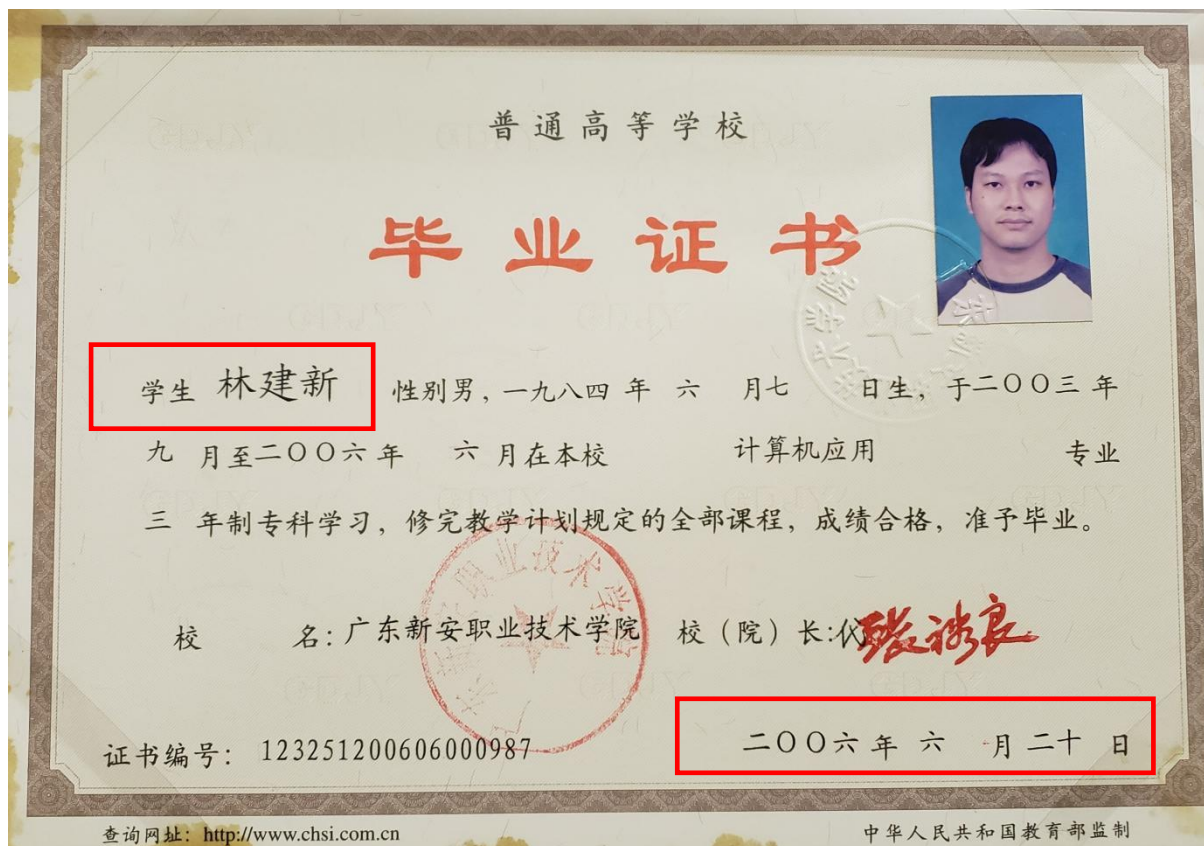 普通高等学校
毕业证书
学生 林建新 性别男，一九八四 年 六 月七 日生，于二〇〇三 年
九 月至二〇〇六 年 六 月在本校 计算机应用 专业
三 年制专科学习，修完教学计划规定的全部课程，成绩合格，准予毕业。
校 名：广东新安职业技术学院 校（院）长：代
广东新安职业技术学院
证书编号： 123251200606000987 二〇〇六 年 六 月 二十 日
查询网址：http://www.chsi.com.cn 中华人民共和国教育部监制